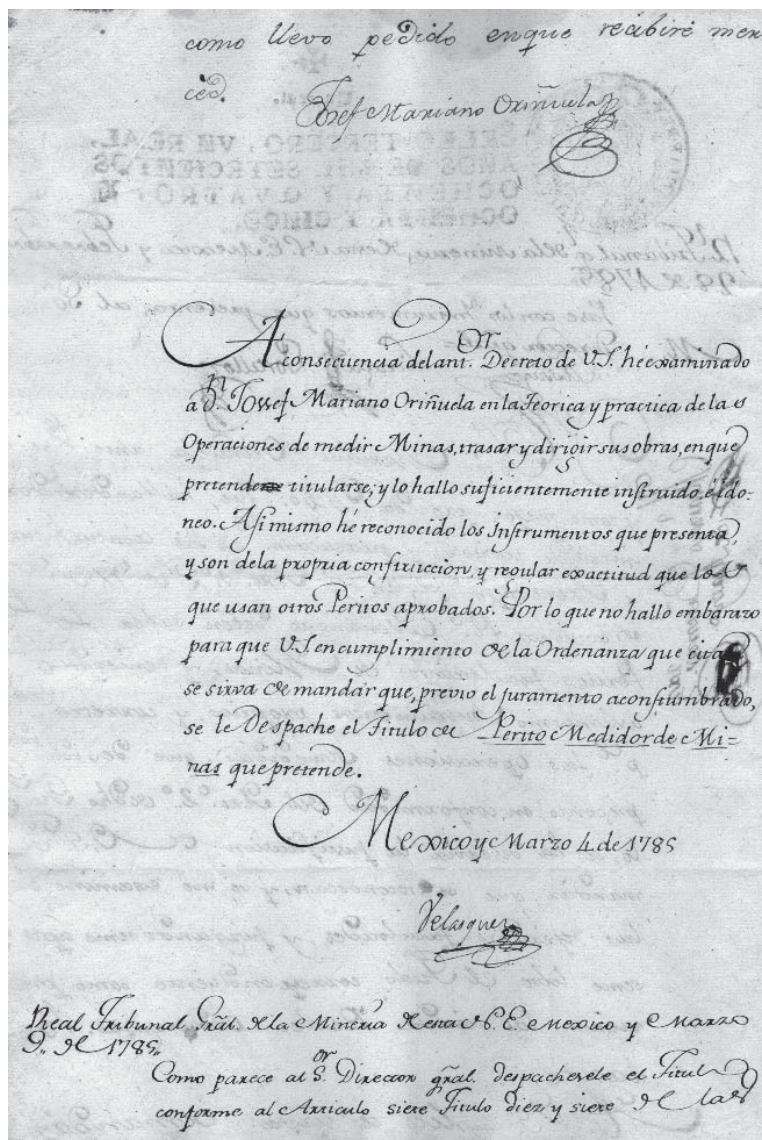 como llevo pedido enque recibiré mer
ced.
Josef Mariano Oriñuela
A consecuencia del ant.or Decreto de V.S. hé examinado
a d.n Jossef Mariano Oriñuela en la Teorica y practica de las
Operaciones de medir Minas, trasar y dirigir sus obras, en que
pretende titularse; y lo hallo suficientemente instruido, é ido-
neo. Asi mismo hé reconocido los Instrumentos que presenta,
y son dela propria construccion, y regular exactitud que los
que usan otros Peritos aprobados. Por lo que no hallo embarazo
para que V.S. en cumplimiento de la Ordenanza que cita
se sirva de mandar que, previo el juramento aconstumbrado,
se le Despache el Titulo de Perito Medidor de Mi-
nas que pretende.
Mexico y Marzo 4. de 1785
Velasquez
Real Tribunal Grãl. de la Mineria de esta N. E. Mexico y Marzo
9,, de 1785,,
Como parece al S.or Director gral. despachesele el Titulo
conforme al Articulo siete Titulo diez y siete de las